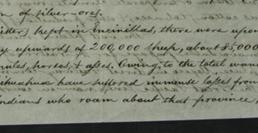 of silver-ores.
kept in Encinillas, there were upon
upwards of 200,000 sheep, about 15,000
mules, horses, & asses. Owing to the total want
Chihuahua have suffered immense losses from
Indians who roam about that province